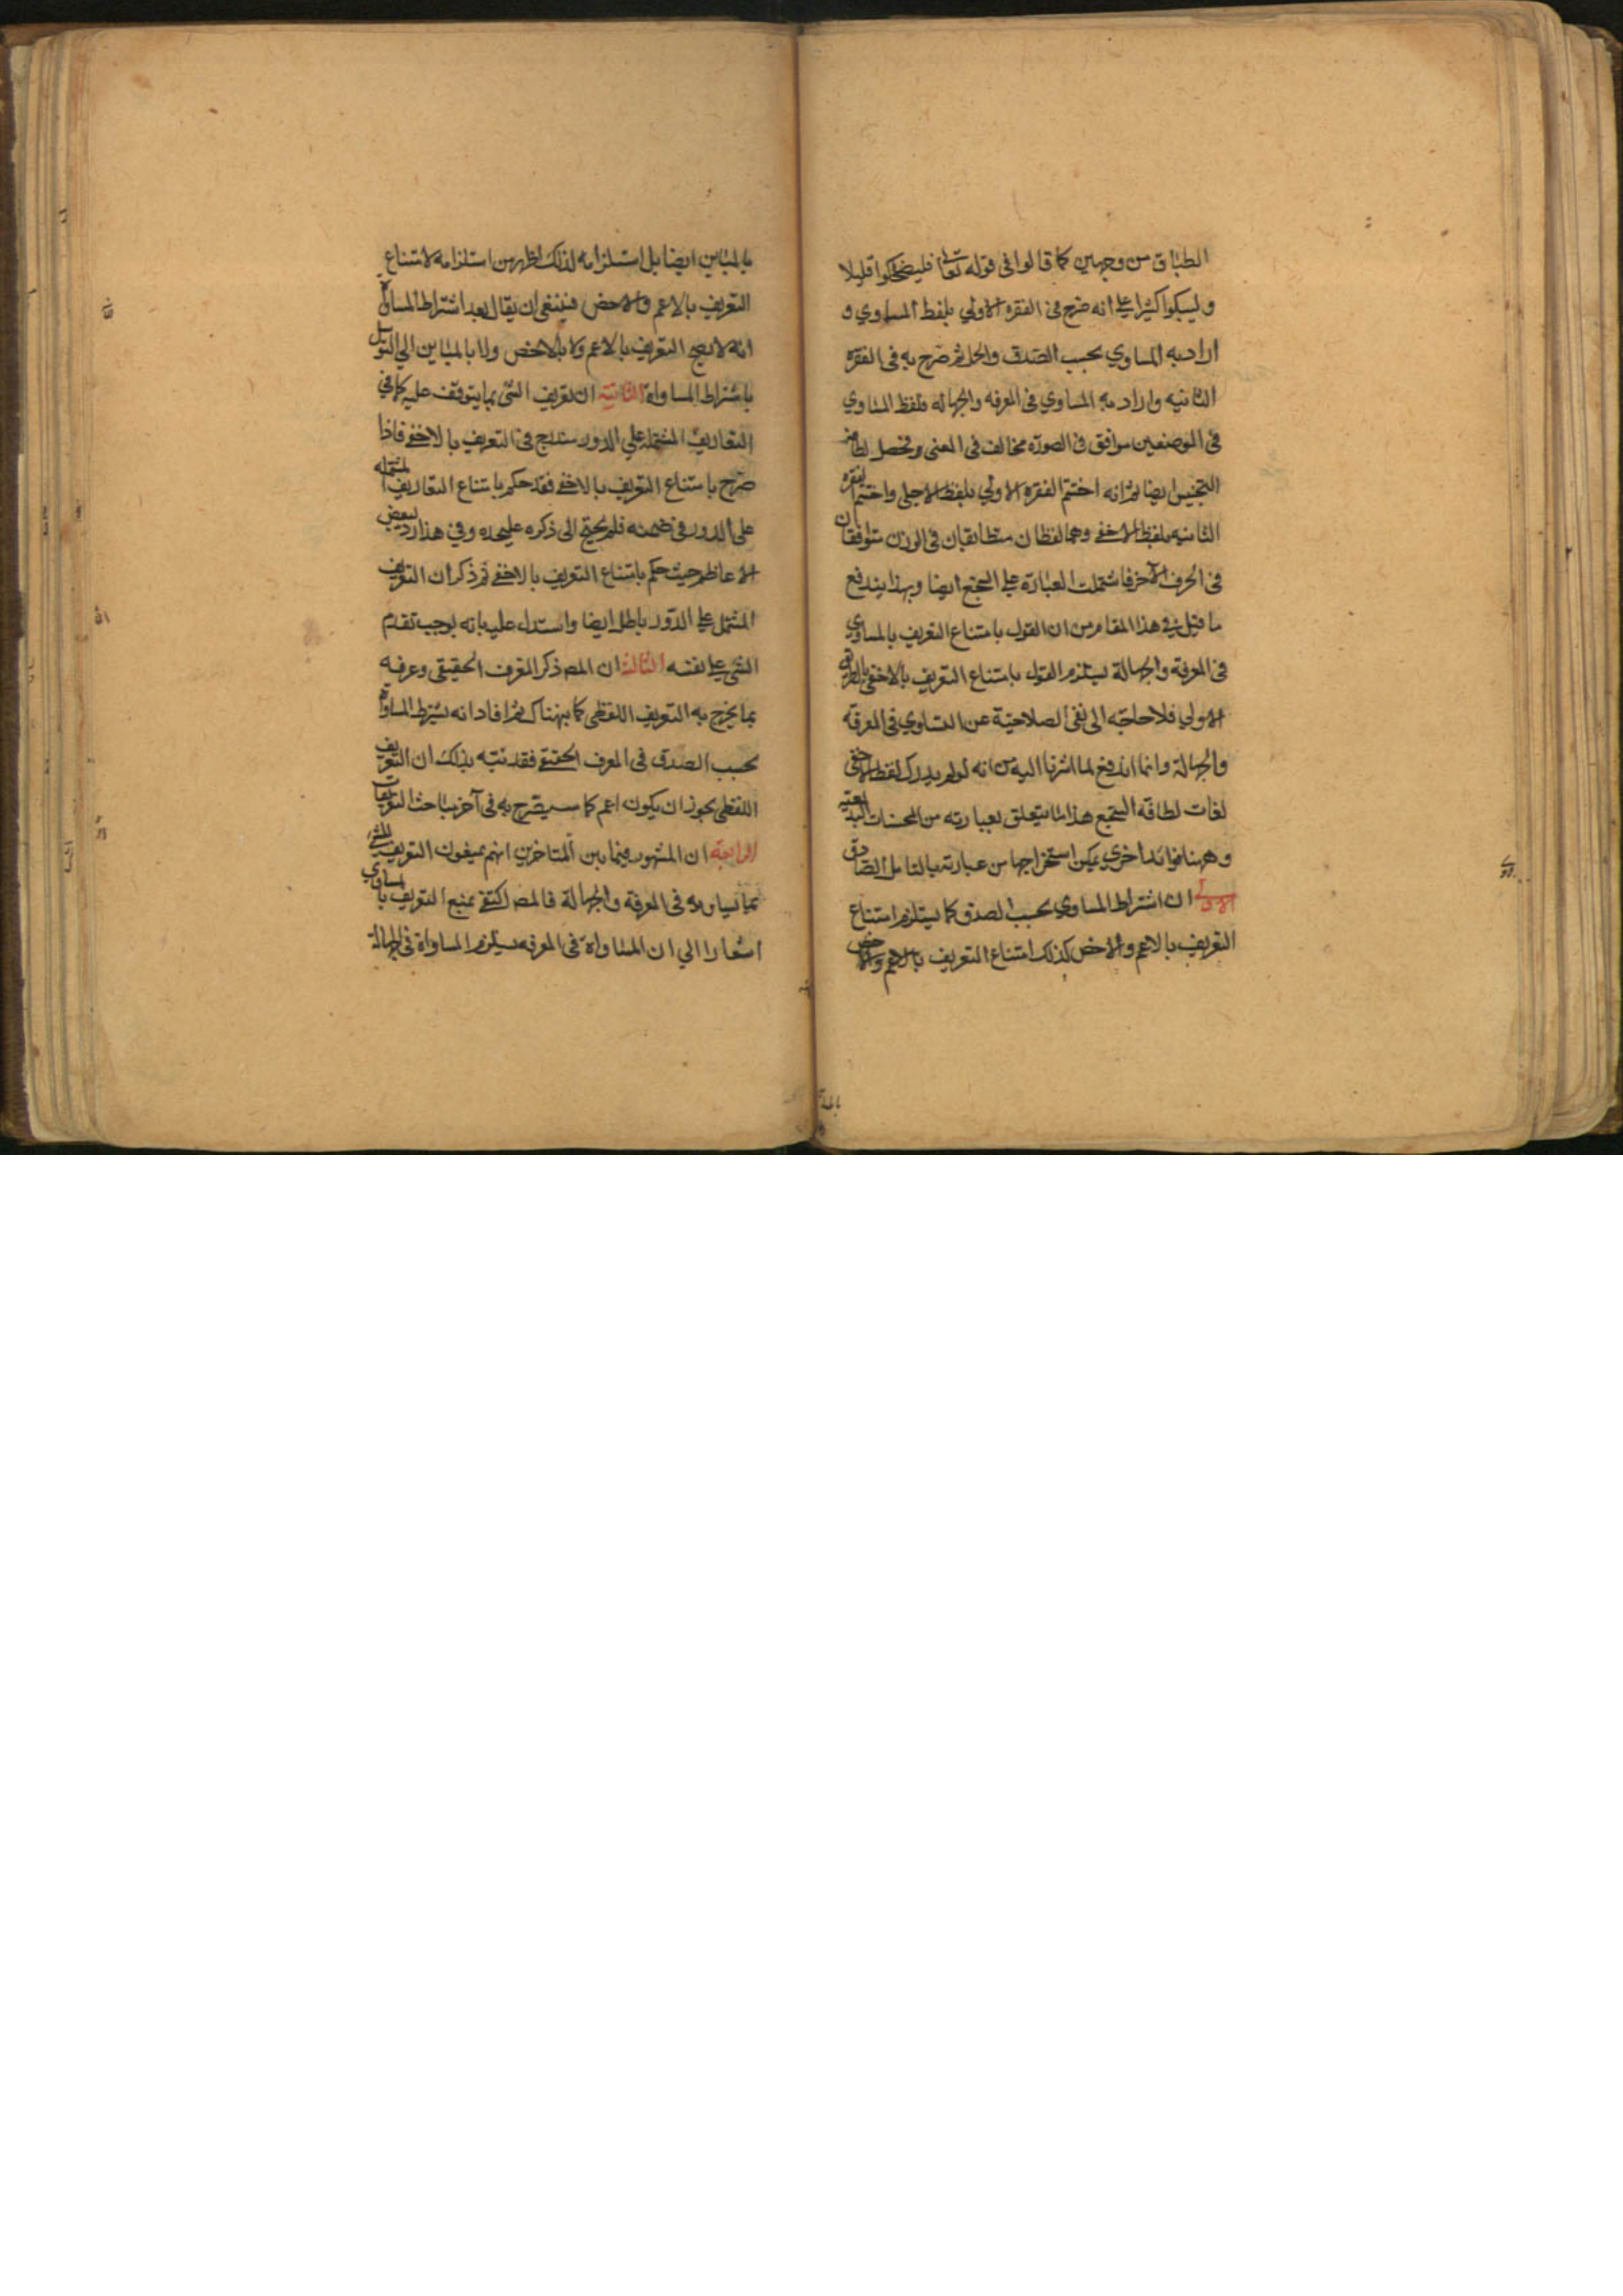 الطباق من وجهين كما قالوا في قوله تعالى فليضحكوا قليلا
وليبكوا كثيرا على انه صرح في الفقره الاولي بلفظ المساوي و
اراد به المساوي بحسب الصدق والحمل ثم صرح به في الفقره
الثانيه واراد به المساوي في المعرفه والجهاله فلفظ المساوي
في الموضعين موافق في الصورة مخالف في المعنى وتحصل
التجنيس ايضا ثم انه اختتم الفقره الاولي بلفظ الاجلى واختتم الفقره
الثانيه بلفظ الاخفى وهما لفظان متطابقان في الوزن متوافقان
في الحرف الآخر فاشتملت العبارة على السجع ايضا وبهذا يندفع
ما قيل في هذا المقام من ان القول بامتناع التعريف بالمساوي
في المعرفة والجهالة يستلزم القول بامتناع التعريف بالاخفى بالطريق
الاولي فلا حاجة الى نفى الصلاحية عن المساوي في المعرفة
والجهالة وانما اندفع لما اشرنا اليه من انه لو لم يذكر لفظ الاخفى
لفات لطافة السجع هذا ما يتعلق بعبارته من المحسنات البديعية
وههنا فوائد اخري يمكن استخراجها من عبارته بالتامل الصادق
الاولى ان اشتراط المساوي بحسب الصدق كما يستلزم امتناع
التعريف بالاعم والاخص كذلك امتناع التعريف بالاعم والاخص
بالمباين ايضا بل استلزامه لذلك اظهر من استلزامه لامتناع
التعريف بالاعم والاخص فينبغى ان يقال بعد اشتراط المساواة
انه لا يصح التعريف بالاعم ولا بالاخص ولا بالمباين الي
باشتراط المساواة الثانية ان تعريف الشئ بما يتوقف عليه كما في
التعاريف المشتملة علي الدور مندرج في التعريف بالاخفى فاذا
صرح بامتناع التعريف بالاخفى فقد حكم بامتناع التعاريف المشتمله
على الدور في ضمنه فلم يحتج الى ذكره عليحده وفي هذا رد لبعض
الاعاظم حيث حكم بامتناع التعريف بالاخفى ثم ذكر ان التعريف
المشتمل على الدور باطل ايضا واستدل عليه بانه يوجب تقدم
الشئ على نفسه الثالثة ان المصـ ذكر المعرف الحقيقى وعرفه
بما يخرج به التعريف اللفظى كما بينهناك ثم افاد انه يشترط المساواة
بحسب الصدق في المعرف الحقيقى فقد نبه بذلك ان التعريف
اللفظى يجوز ان يكون اعم كما سيصرح به في آخر مباحث التعريفات
الرابعة ان المشهور فيما بين المتاخرين انهم يمنعون التعريف للشئ
بما يساويه في المعرفة والجهالة فالمصـ اكتفى بمنع التعريف بالمساوي
اشعارا الي ان المساواة في المعرفه يستلزم المساواة في الجهالة